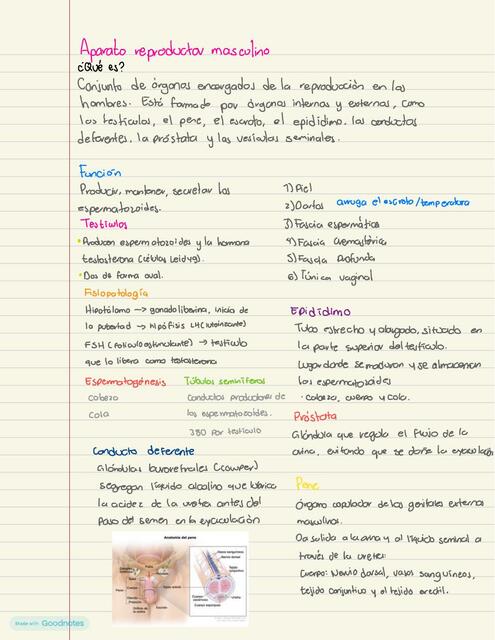 Aparato reproductor masculino
¿Qué es?
Conjunto de órganos encargados de la reproducción en los
hombres. Está formado por órganos internos y externos, como
los testículos, el pene, el escroto, el epidídimo. los conductos
deferentes. la próstata y las vesículas seminales.
Función
Producir, mantener, secretar los
espermatozoides.
Testículos
• Producen espermatozoides y la hormona
testosterona (células Leidyg).
• Dos de forma oval.
1) Piel
2) Dartos arruga el escroto/temperatura
3) Fascia espermática
4) Fascia cremastérica
5) Fascia profunda
6) Túnica vaginal
Fisiopatología
Hipotálamo → gonadoliberina, inicia de
la pubertad → hipófisis LH (luteinizante)
FSH (foliculoestimulante) → testículo
que lo libera como testosterona
Espermatogénesis
cabeza
Cola
Túbulos seminíferos
Conductos productores de
los espermatozoides.
380 por testículo
Conducto deferente
Glándulas bulboretrales (cowper)
segregan líquido alcalino que lubrica
la acidez de la uretra antes del
paso del semen en la eyaculación
Anatomía del pene
Epidídimo
Tubo estrecho y alargado, situado en
la parte superior del testículo.
Lugar donde se maduran y se almacenan
los espermatozoides
· cabeza, cuerpo y cola.
Próstata
Glándula que regula el flujo de la
orina, evitando que se dañe la eyaculación
Pene
Órgano copulador de los genitales externos
masculinos.
Da salida a la orina y al líquido seminal a
través de la ureter.
Cuerpo: Nervio dorsal, vasos sanguíneos,
tejido conjuntivo y el tejido eréctil.
Made with Goodnotes